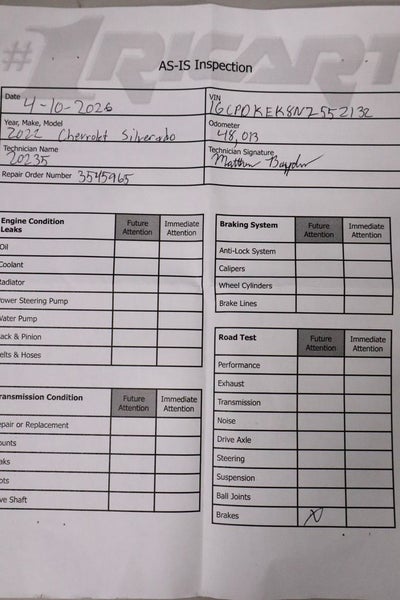 #1 RICART
AS-IS Inspection
Date 4-10-2026
VIN 1GCPDKEK8NZ552132
Year, Make, Model 2022 Chevrolet Silverado
Odometer 48,013
Technician Name 20235
Technician Signature
Repair Order Number 3545965
Engine Condition Leaks Future Attention Immediate Attention
Oil
Coolant
Radiator
ower Steering Pump
Water Pump
ack & Pinion
elts & Hoses
ransmission Condition Future Attention Immediate Attention
epair or Replacement
ounts
aks
ots
ve Shaft
Braking System Future Attention Immediate Attention
Anti-Lock System
Calipers
Wheel Cylinders
Brake Lines
Road Test Future Attention Immediate Attention
Performance
Exhaust
Transmission
Noise
Drive Axle
Steering
Suspension
Ball Joints
Brakes X